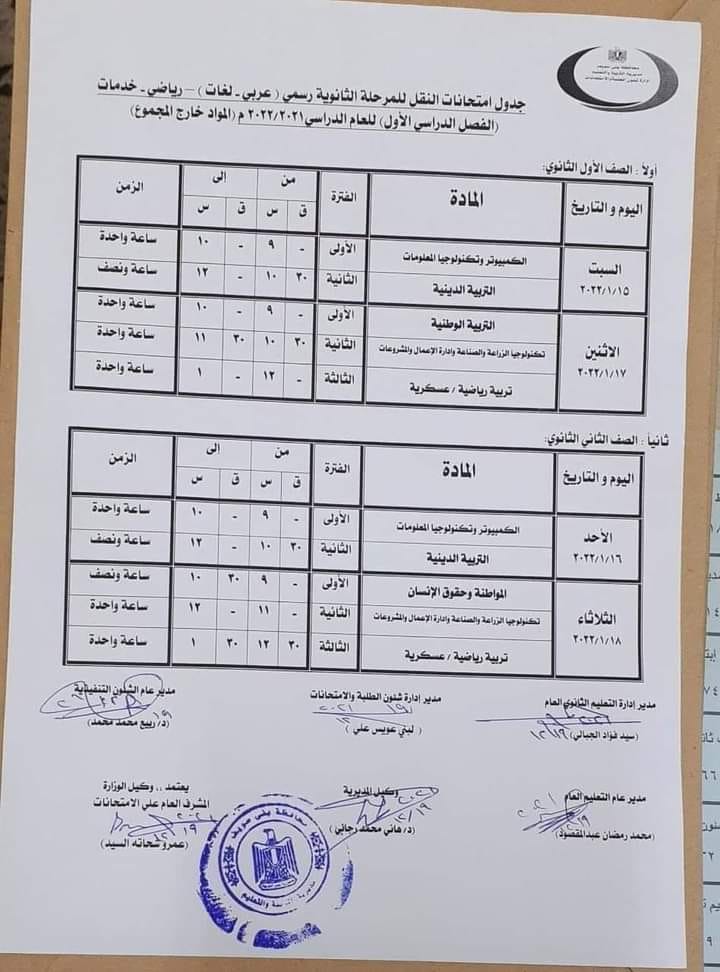 محافظة بني سويف
مديرية التربية والتعليم
إدارة شئون الطلبة والامتحانات
جدول امتحانات النقل للمرحلة الثانوية رسمي ( عربي - لغات ) – رياضي - خدمات
(الفصل الدراسي الأول) للعام الدراسي ٢٠٢٢/٢٠٢١ م (المواد خارج المجموع)
أولاً : الصف الأول الثانوي:
اليوم و التاريخ المادة الفترة من إلى الزمن
ق س ق س
السبت ٢٠٢٢/١/١٥
الكمبيوتر وتكنولوجيا المعلومات الأولى - ٩ - ١٠ ساعة واحدة
التربية الدينية الثانية ٣٠ ١٠ - ١٢ ساعة ونصف
الاثنين ٢٠٢٢/١/١٧
التربية الوطنية الأولى - ٩ - ١٠ ساعة واحدة
تكنولوجيا الزراعة والصناعة وادارة الإعمال والمشروعات الثانية ٣٠ ١٠ ٣٠ ١١ ساعة واحدة
تربية رياضية / عسكرية الثالثة - ١٢ - ١ ساعة واحدة
ثانياً : الصف الثاني الثانوي:
اليوم و التاريخ المادة الفترة من إلى الزمن
ق س ق س
الأحد ٢٠٢٢/١/١٦
الكمبيوتر وتكنولوجيا المعلومات الأولى - ٩ - ١٠ ساعة واحدة
التربية الدينية الثانية ٣٠ ١٠ - ١٢ ساعة ونصف
الثلاثاء ٢٠٢٢/١/١٨
المواطنة وحقوق الإنسان الأولى - ٩ ٣٠ ١٠ ساعة ونصف
تكنولوجيا الزراعة والصناعة وادارة الإعمال والمشروعات الثانية - ١١ - ١٢ ساعة واحدة
تربية رياضية / عسكرية الثالثة ٣٠ ١٢ ٣٠ ١ ساعة واحدة
مدير إدارة التعليم الثانوي العام مدير إدارة شئون الطلبة والامتحانات مدير عام الشئون التنفيذية
(سيد فؤاد الجبالي) ( لبني عويس علي ) (د/ ربيع محمد محمد)
مدير عام التعليم العام وكيل المديرية يعتمد ،، وكيل الوزارة
المشرف العام علي الامتحانات
(محمد رمضان عبدالمقصود) (د/ هاني محمد رجائي) (عمرو شحاته السيد)
محافظة بني سويف
مديرية التربية والتعليم